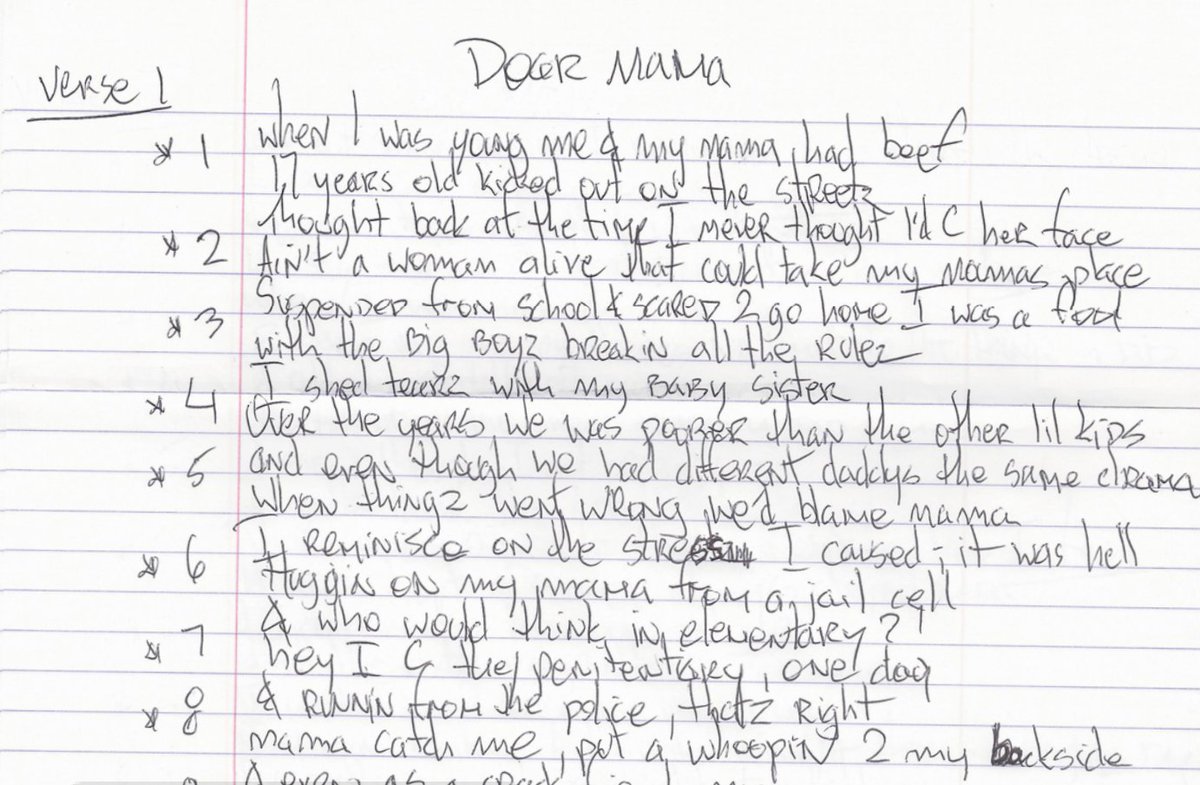 Dear Mama
Verse 1
* 1 When I was young me & my mama had beef
17 years old kicked out on the streetz
* 2 Thought back at the time I never thought I'd C her face
Ain't a woman alive that could take my mamas place
* 3 Suspended from school & scared 2 go home I was a fool
with the Big Boyz breakin all the rulez
* 4 I shed tearz with my Baby sister
Over the years we was poorer than the other lil kids
* 5 and even though we had different daddys the same drama
When thingz went wrong we'd blame mama
* 6 I reminisce on the stress I caused, it was hell
Huggin on my mama from a jail cell
* 7 & who would think in elementary?
hey I C the penitentiary, one day
* 8 & Runnin from the police, thatz Right
mama catch me, put a whoopin 2 my backside